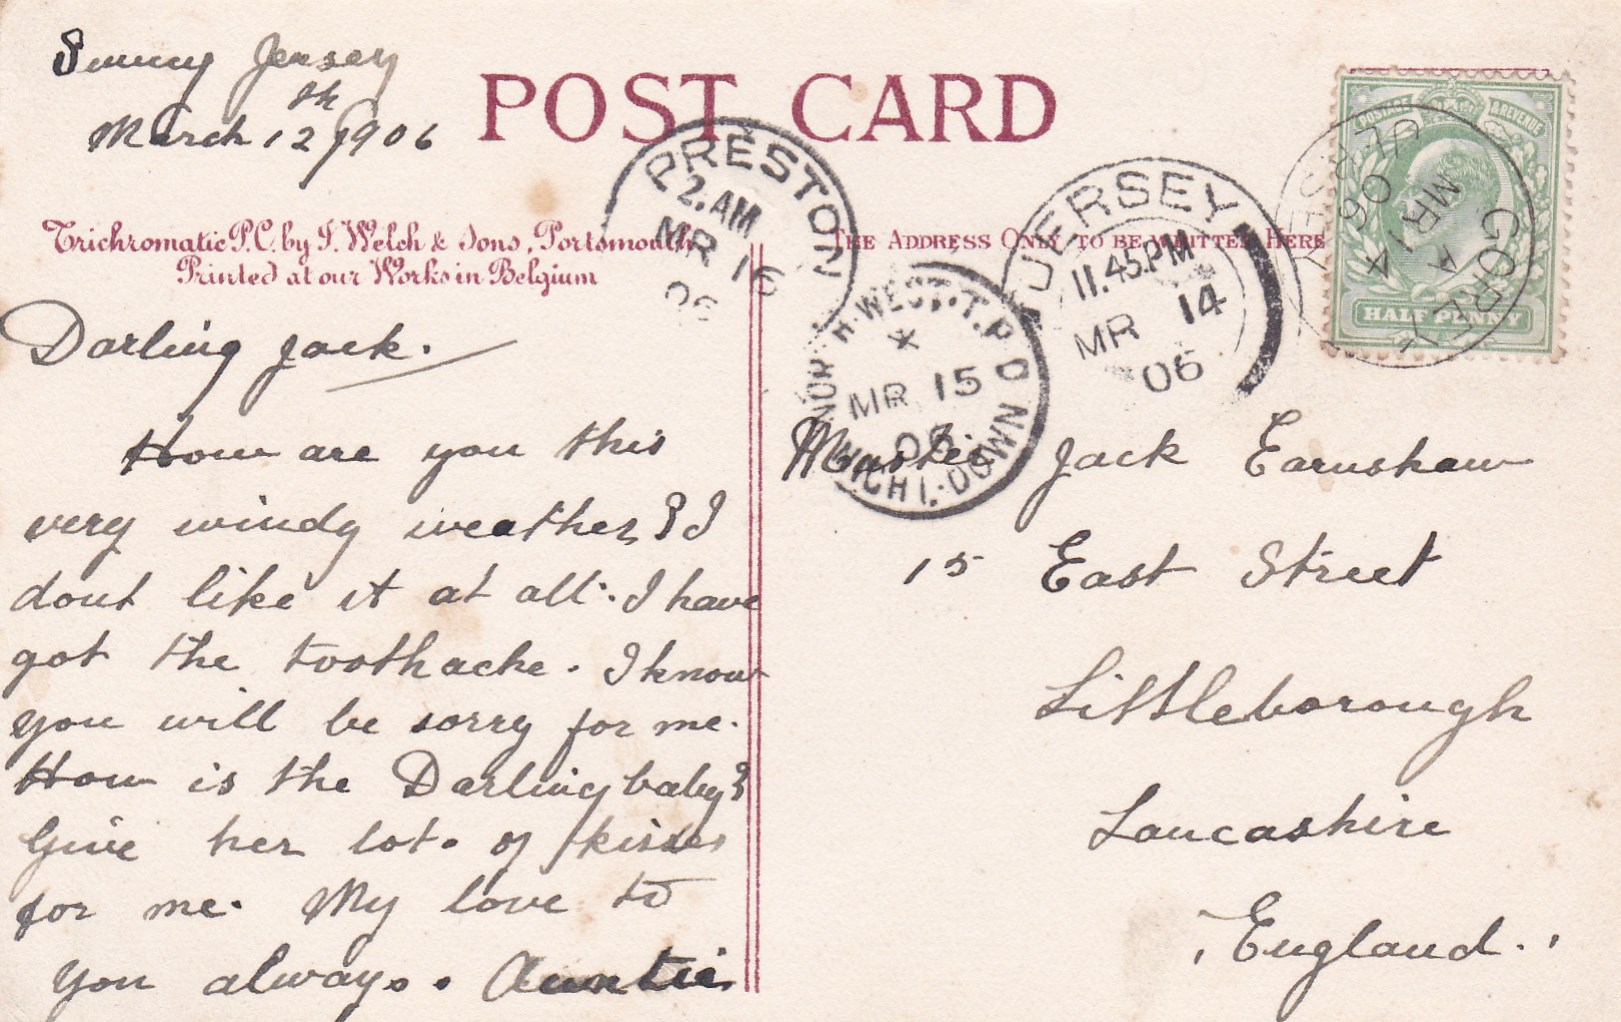 Sunny Jersey
March 12th 1906
POST CARD
Trichromatic P.C. by J. Welch & Sons, Portsmouth
Printed at our Works in Belgium
THE ADDRESS ONLY TO BE WRITTEN HERE
Darling Jack.
How are you this
very windy weather? I
dont like it at all. I have
got the toothache. I know
you will be sorry for me.
How is the Darling baby?
Give her lots of kisses
for me. My love to
you always. Auntie
Master Jack Earnshaw
15 East Street
Littleborough
Lancashire
England.
PRESTON
2. AM
MR 16
06
NORTH WEST. T.P.O
MR 15
06
NIGHT. DOWN
JERSEY
11.45PM
MR 14
06
GOREY
JERSEY
A
MR 14
06
POSTAGE & REVENUE
HALF PENNY